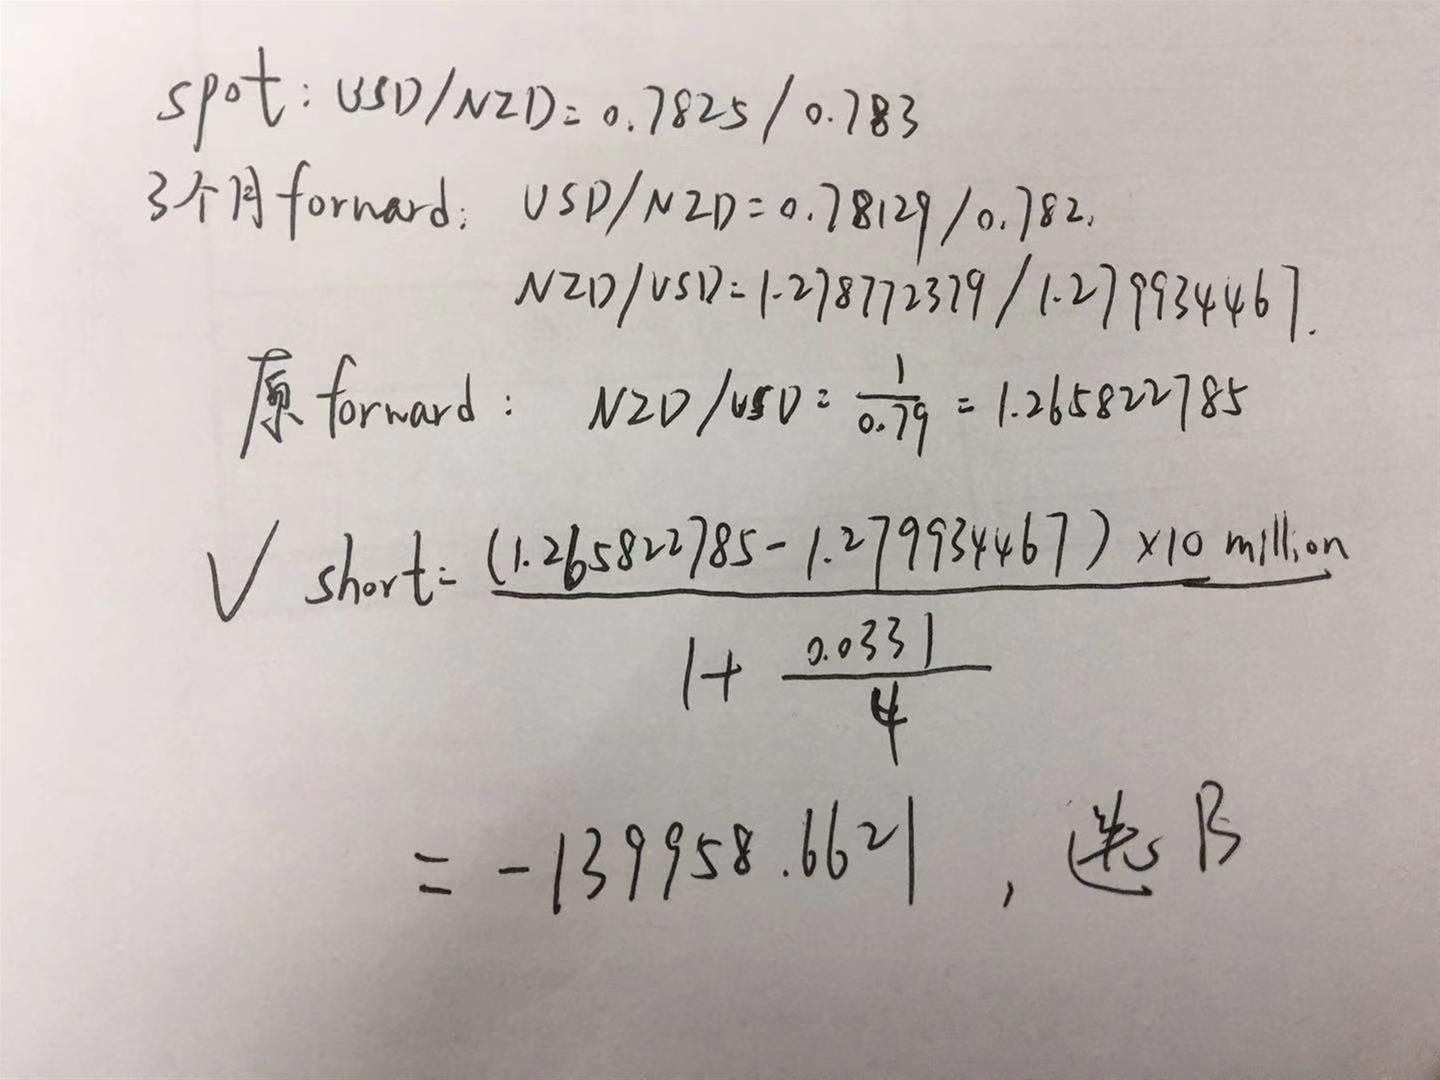 spot: USD/NZD= 0.7825/0.783
3个月forward: USD/NZD=0.78129/0.782.
NZD/USD=1.278772379/1.279934467.
原forward: NZD/USD= 1/0.79 = 1.265822785
V short= (1.265822785-1.279934467) ×10 million
1+ 0.0331/4
= -139958.6621, 选B